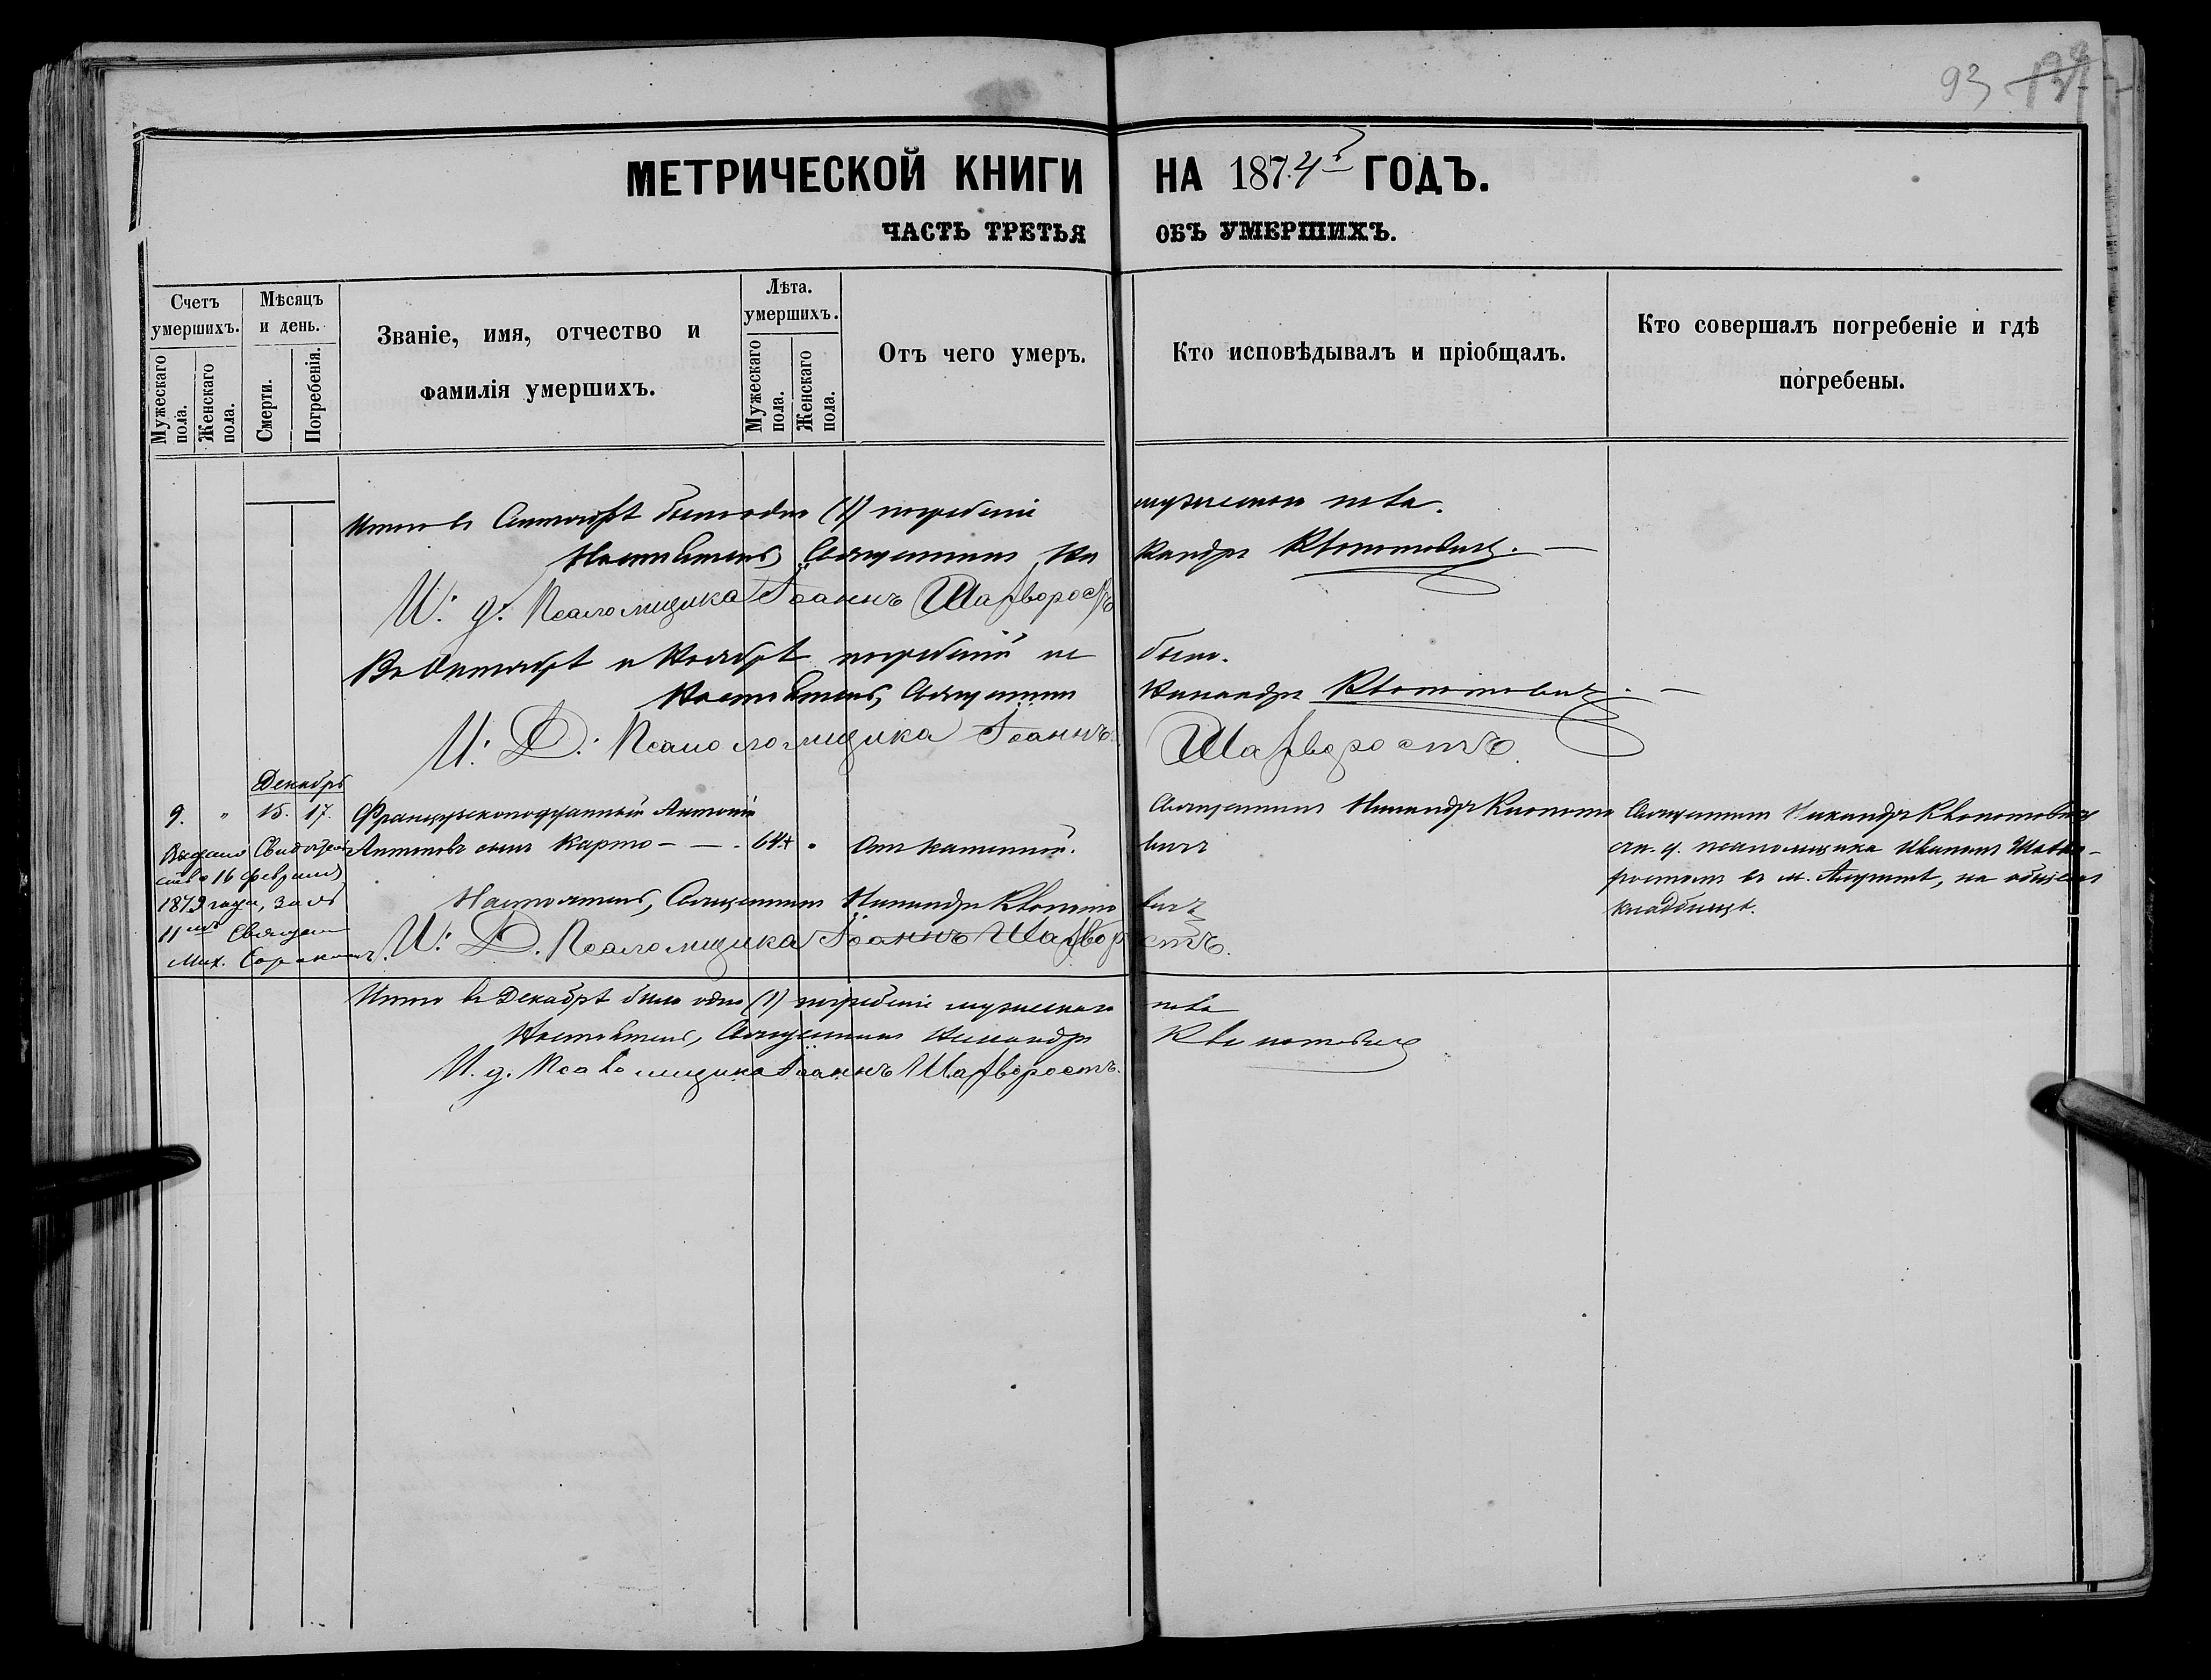 93 134
МЕТРИЧЕСКОЙ КНИГИ НА 1874й ГОДЪ.
ЧАСТЬ ТРЕТЬЯ ОБЪ УМЕРШИХЪ.
Счетъ умершихъ.
Мужескаго пола.
Женскаго пола.
Мѣсяцъ и день.
Смерти.
Погребенія.
Званіе, имя, отчество и
фамилія умершихъ.
Лѣта.
умершихъ.
Мужескаго пола.
Женскаго пола.
Отъ чего умеръ.
Кто исповѣдывалъ и пріобщалъ.
Кто совершалъ погребеніе и гдѣ
погребены.
Итого въ Сентябрѣ было одно (1) погребеніе мужескаго пола.
Настоятель, Священникъ Никандръ
И. д. Псаломщика Іоаннъ
Въ Октябрѣ и Ноябрѣ погребеній не было.
Настоятель, Священникъ Никандръ
И. Д. Псаломщика Іоаннъ
Декабрь
9. " 15. 17. Французскоподданный Антоній
Антоновъ сынъ Карто – — . 64 "
Священникъ Никандръ
Священникъ Никандръ
и. д. псаломщика
въ м. на общемъ
кладбищѣ.
Выдано Свидѣтель-
ство 16 февраля
1879 года, за №
11мъ Священ
Мих.
Настоятель, Священникъ Никандръ
И. Д. Псаломщика Іоаннъ
Итого въ Декабрѣ было одно (1) погребеніе мужескаго пола
Настоятель, Священникъ Никандръ
И. д. Псаломщика Іоаннъ